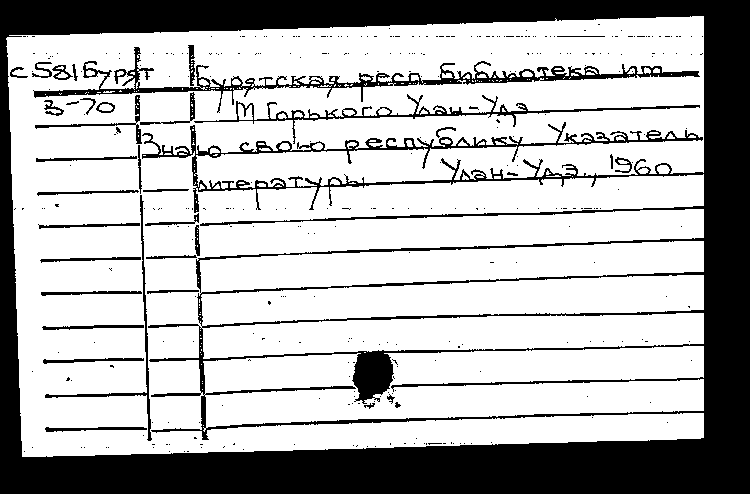 с581Бурят Бурятская респ библиотека им
З-70 М Горького Улан-Удэ
Знаю свою республику Указатель
литературы Улан-Удэ, 1960